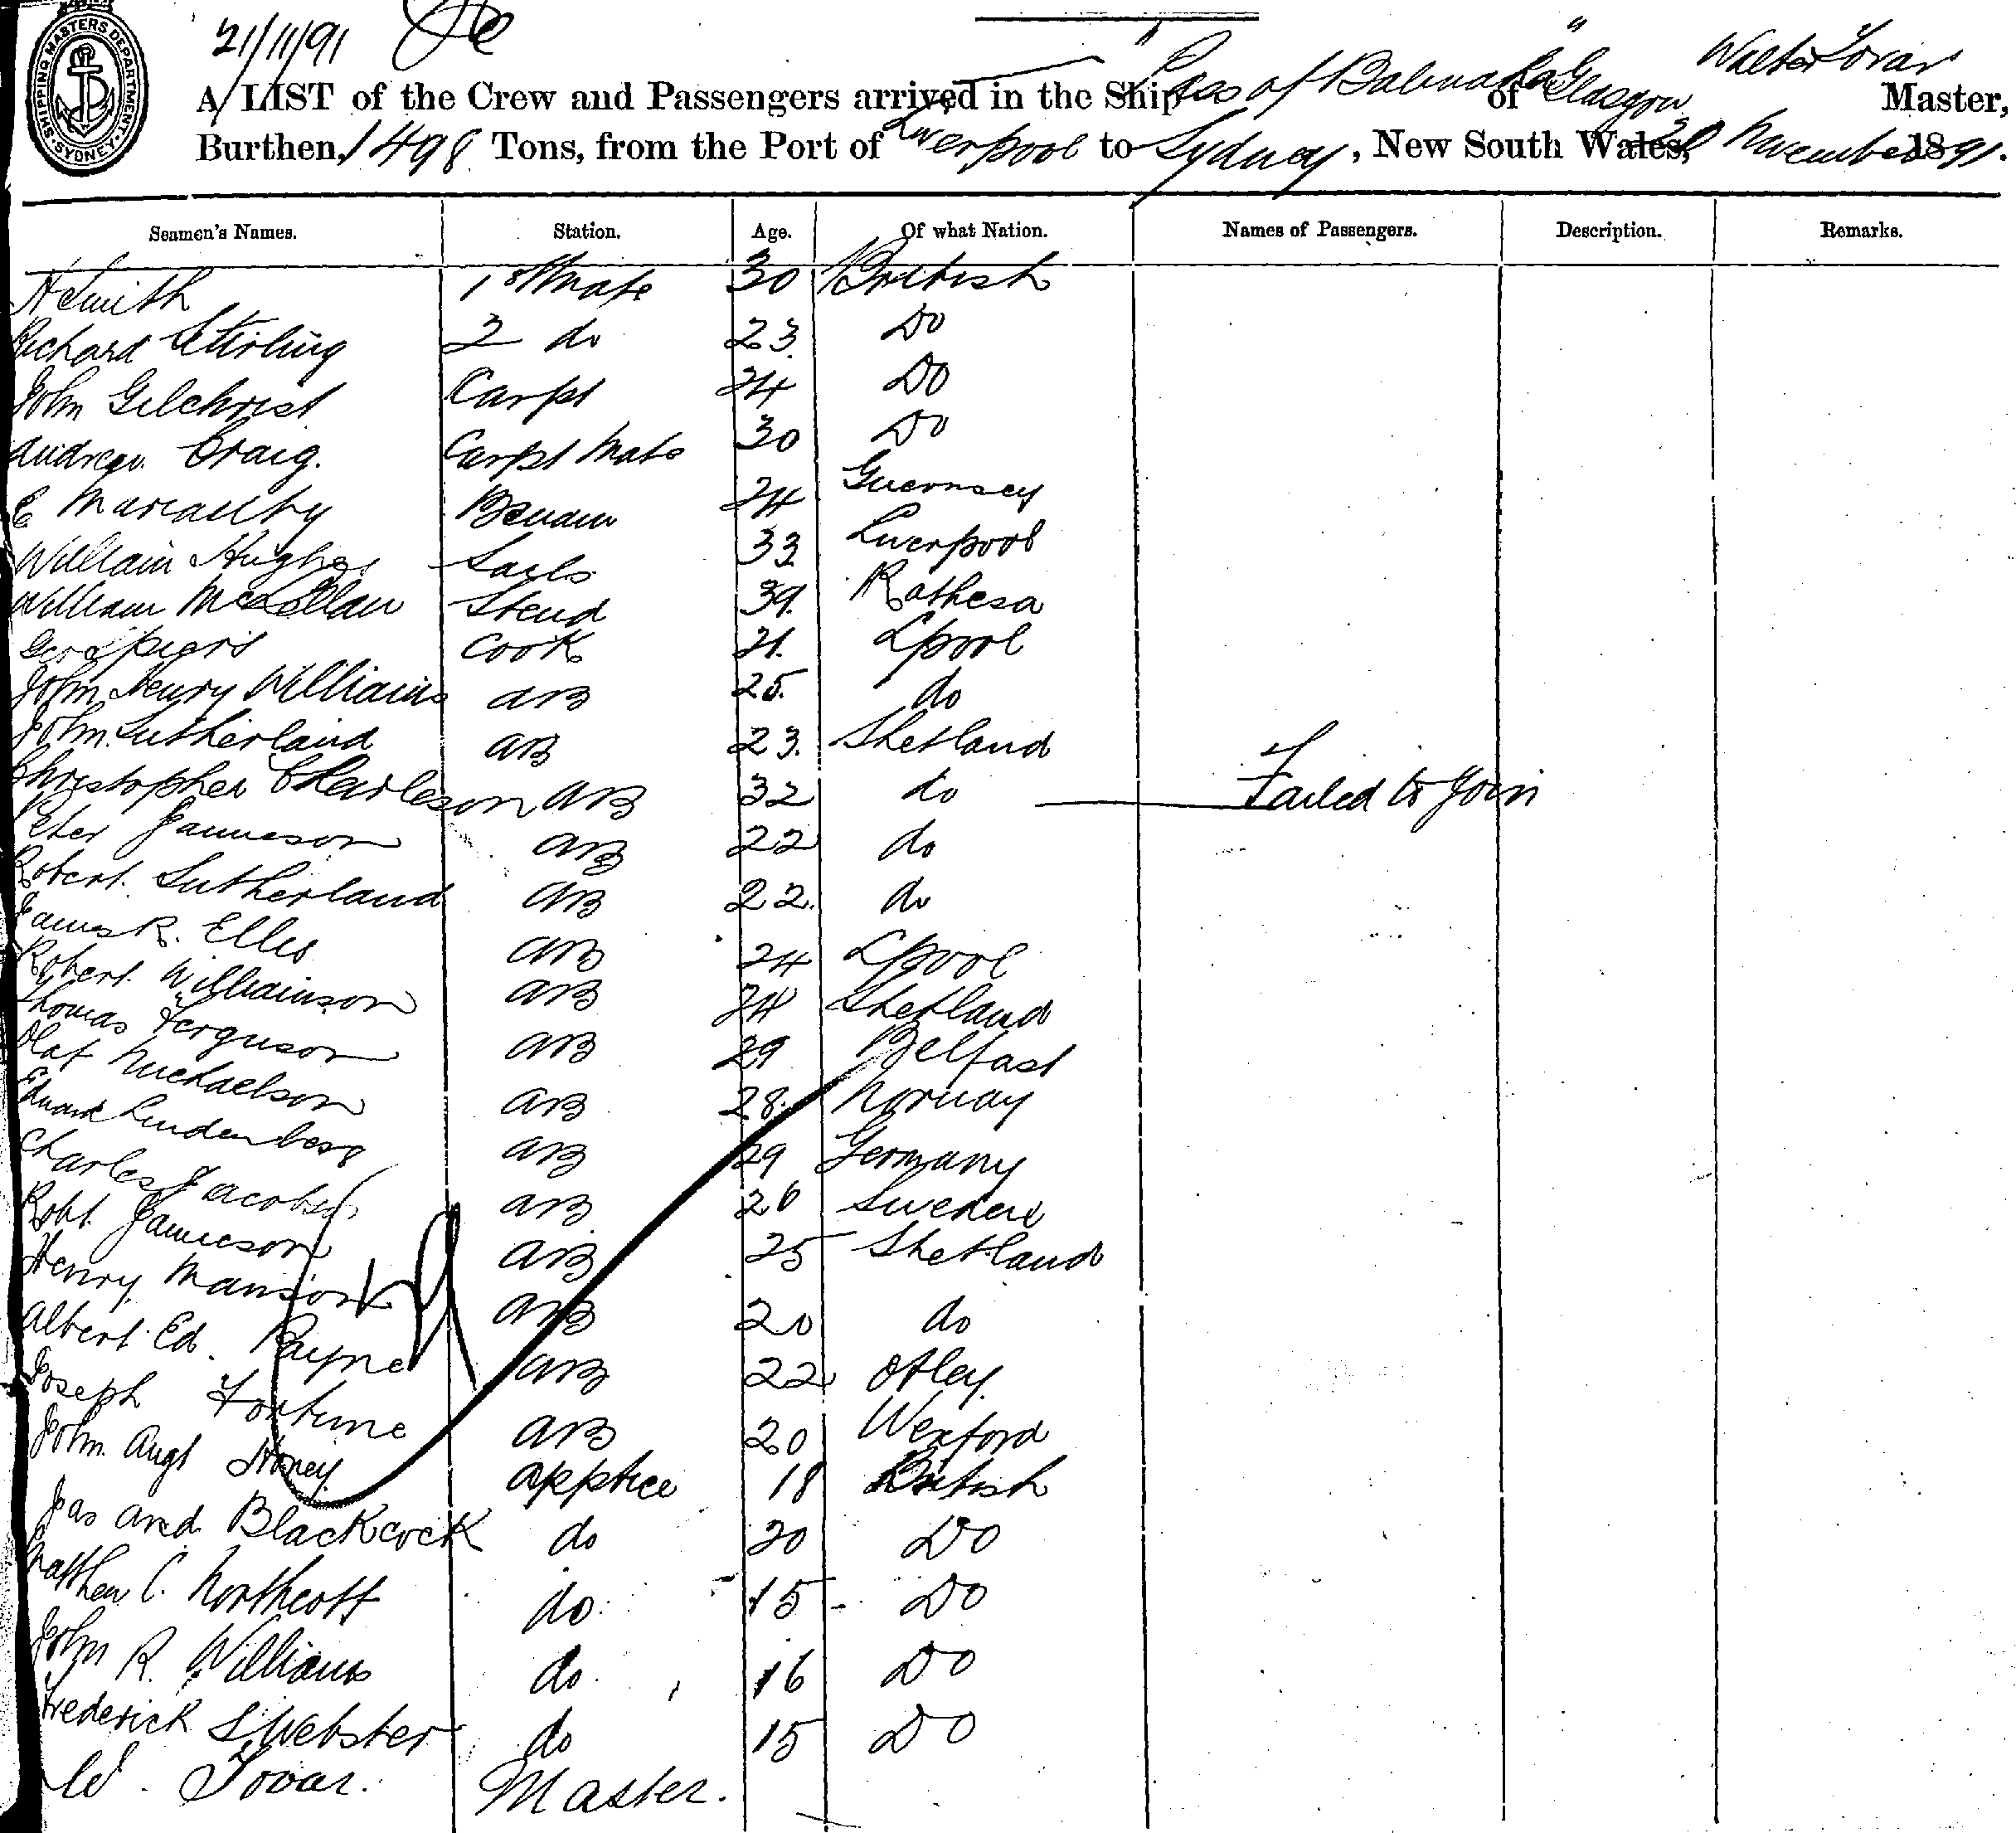 SHIPPING MASTERS DEPARTMENT SYDNEY
21/11/91
A LIST of the Crew and Passengers arrived in the Ship "Pass of Balmaha" of Glasgow Walter Tovar Master,
Burthen, 1498 Tons, from the Port of Liverpool to Sydney, New South Wales, November 1891.
Seamen's Names. Station. Age. Of what Nation. Names of Passengers. Description. Remarks.
A Smith 1st Mate 30 British
Richard Stirling 2 do 23. Do
John Gilchrist Carpt 24 Do
Andrew Craig. Carpt Mate 30 Do
E 24 Guernsey
William Hughes Sails 33 Liverpool
William McLellan Steud 39. Rothesa
Geo Spiers Cook 21. Lpool
John Henry Williams AB 25. do
John Sutherland AB 23. Shetland
Christopher Charleson AB 32 do Failed to Join
Peter Jamieson AB 22 do
Robert Sutherland AB 22. do
James R. Ellis AB 24 Lpool
Robert Williamson AB 24 Shetland
Thomas Ferguson AB 29 Belfast
Olaf Michaelson AB 28. Norway
Eduard Lindenberg AB 29 Germany
Charles Jacobs AB 26 Sweden
Robt. Jamieson AB 25 Shetland
Henry Manson AB 20 do
Albert Ed. Payne AB 22 Otley
Joseph Fortune AB 20 Wexford
John Augt Honey Apptice 18 British
Jas And. Blackcock do 20 Do
Matthew C. Northcott do 15 Do
John R. Williams do 16 Do
Frederick S Webster do 15 Do
W. Tovar. Master.